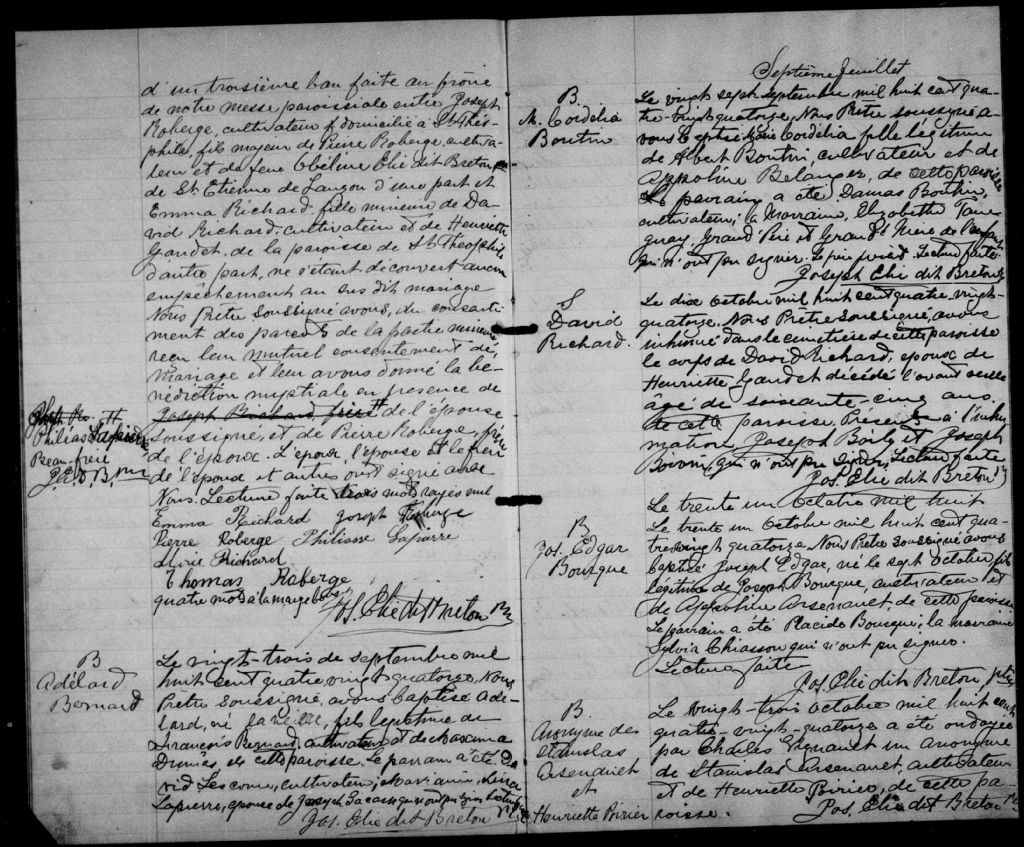 d'un troisième ban faite au prône
de notre messe paroissiale entre Joseph
Roberge, cultivateur domicilié à St Théo-
phile, fils majeur de Pierre Roberge, cultiva-
teur et de feue Obéline Elie dit Breton
de St. Etienne de Lauzon d'une part et
Emma Richard fille mineure de Da-
vid Richard, cultivateur et de Henriette
Gaudet, de la paroisse de St Théophile
d'autre part, ne s'étant découvert aucun
empêchement au sus dit mariage
Nous Prêtre soussigné avons, du consenti-
ment des parents de la partie mineure
reçu leur mutuel consentement de
mariage et leur avons donné la bé-
nédiction nuptiale en présence de
Joseph Richard frère # de l'épouse
soussigné, et de Pierre Roberge, frère
de l'époux. L'époux, l'épouse et le frère
de l'époux et autres ont signé avec
Nous. Lecture faite trois mots rayés nul
Emma Richard Joseph Roberge
Pierre Roberge Philiasse Laparre
Richard
Thomas Roberge
quatre mots à la marge bons
Jos. Elie dit Breton Ptr
#
Philias
Beau-frère
J. E. D. B. Ptr
B
Adélard
Bernard
Le vingt-trois de septembre mil
huit cent quatre-vingt quatorze, Nous
Prêtre soussigné, avons baptisé Adé-
lard, né la veille, fils légitime de
François Bernard, cultivateur et de Maxima
de cette paroisse. Le parrain a été Da-
vid Lescom, cultivateur; marraine,
Lapierre, épouse de Joseph qui n'ont pu signer Lecture faite
Jos. Elie dit Breton Ptr
Septième feuillet
B.
M. Cordélia
Boutin
Le vingt sept septembre mil huit cent qua-
tre-vingt quatorze, Nous Prêtre soussigné a-
vons baptisé Marie Cordélia fille légitime
de Albert Boutin, cultivateur et de
Appoline Belanger, de cette paroisse
Le parrain a été Damas Boutin,
cultivateur; la Marraine, Elizabeth Tan-
guay, Grand Père et Grand'Mère de l'enfant
qui n'ont pu signer. Le père Lecture faite
Joseph Elie dit Breton
S
David
Richard.
Le dix octobre mil huit cent quatre vingt-
quatorze, Nous Prêtre soussigné, avons
inhumé dans le cimetière de cette paroisse
le corps de David Richard, époux de
Henriette Gaudet décédé l'avant veille
âgé de soixante-cinq ans,
de cette paroisse. Présents à l'inhu-
mation Joseph Boily et Joseph
qui n'ont pu signer, Lecture faite
Jos. Elie dit Breton
Le trente un octobre mil huit
B
Jos. Edgar
Bourque
Le trente un octobre mil huit cent qua-
tre vingt quatorze, Nous Prêtre soussigné avons
baptisé Joseph Edgar, né le sept octobre, fils
légitime de Joseph Bourque, cultivateur et
de Appoline Arsenault, de cette paroisse
Le parrain a été Placide Bourque; la marraine
Sylvia Chiasson qui n'ont pu signer.
Lecture faite
Jos. Elie dit Breton, ptre
B.
Anonyme des
Stanislas
Arsenault
et
Henriette Poirier
Le vingt-trois octobre mil huit cent
quatre-vingt-quatorze a été ondoyés
par Charles Vignault un anonyme
de Stanislas Arsenault, cultivateur
et de Henriette Poirier, de cette pa-
roisse. Jos. Elie dit Breton Ptr